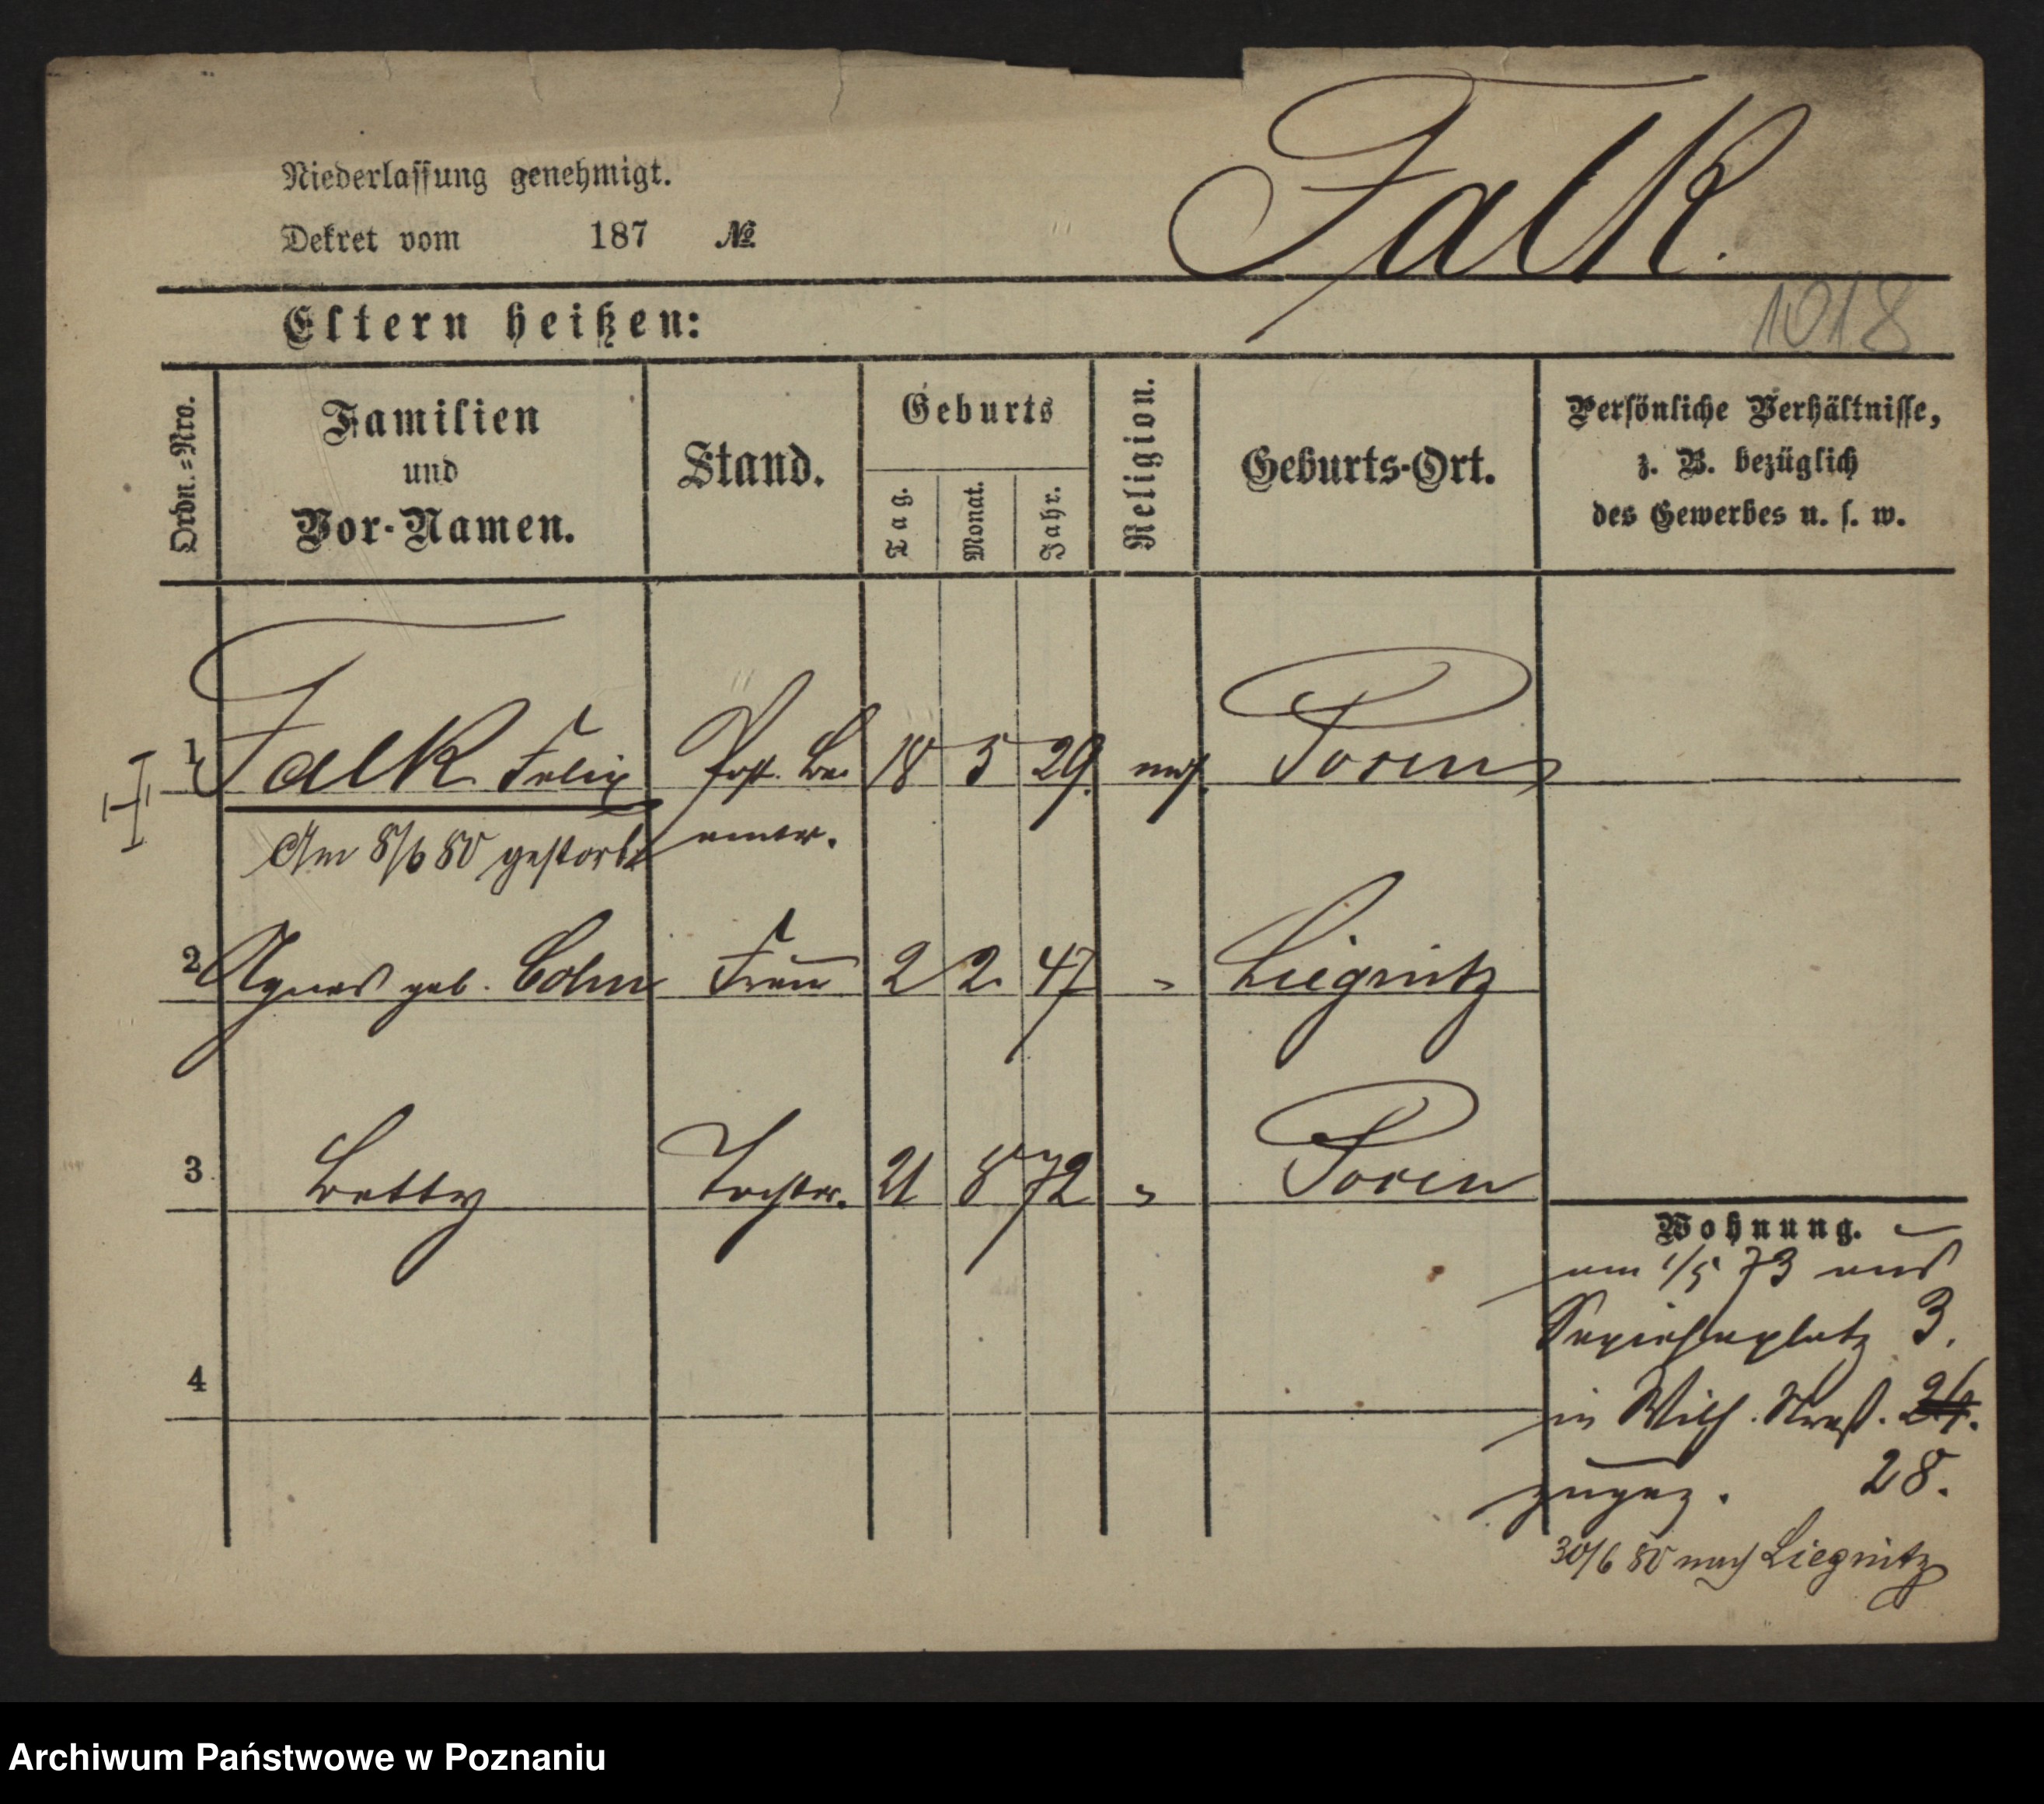 Falk.
Niederlassung genehmigt.
Dekret vom 187 №
Eltern heißen:
1018
Ordn.=Nro.
Familien
und
Vor-Namen.
Stand.
Geburts
Tag.
Monat.
Jahr.
Religion.
Geburts-Ort.
Persönliche Verhältnisse,
z. B. bezüglich
des Gewerbes u. s. w.
1 Falk Felix Post. Be 18 5 29. mos. Posen
amter.
Am 8/6 80 gestorb
2 Agnes geb. Cohn Frau 2 2. 47 " Liegnitz
3 Betty Tochter. 21 8 72 " Posen
4
Wohnung.
am 1/5 73 aus
Sapiehaplatz 3.
in Wilh. Straß. 24.
zugez. 28.
30/6 80 nach Liegnitz
Archiwum Państwowe w Poznaniu